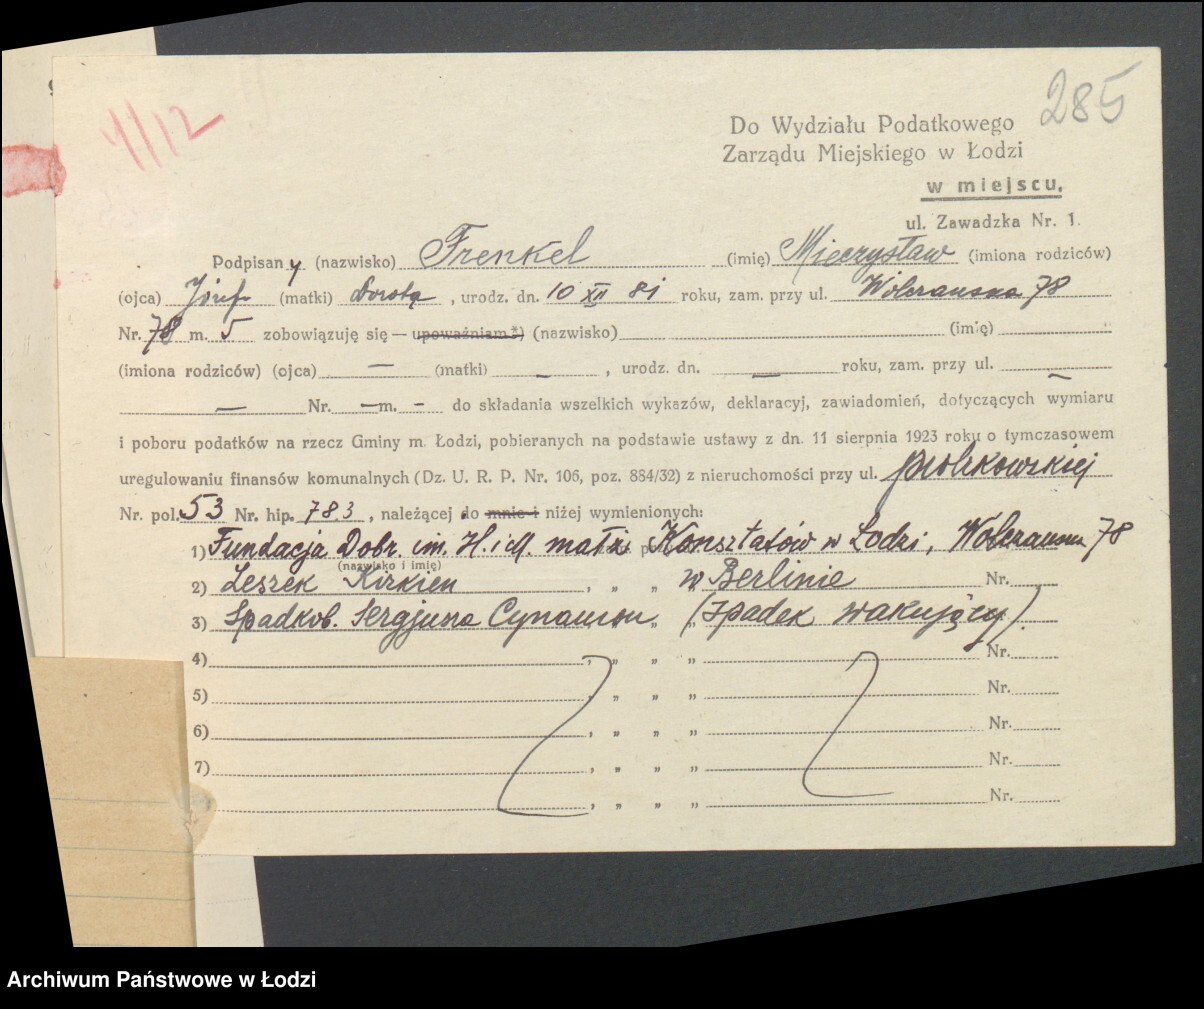 285
4/12
Do Wydziału Podatkowego
Zarządu Miejskiego w Łodzi
w miejscu,
ul. Zawadzka Nr. 1.
Podpisany (nazwisko) Frenkel (imię) Mieczysław (imiona rodziców)
(ojca) Józef (matki) Dorota, urodz. dn. 10 XII 81 roku, zam. przy ul. Wólczańska 78
Nr. 78 m. 5 zobowiązuję się — upoważniam*) (nazwisko) (imię)
(imiona rodziców) (ojca) — (matki) —, urodz. dn. — roku, zam. przy ul. —
— Nr. — m. — do składania wszelkich wykazów, deklaracyj, zawiadomień, dotyczących wymiaru
i poboru podatków na rzecz Gminy m. Łodzi, pobieranych na podstawie ustawy z dn. 11 sierpnia 1923 roku o tymczasowem
uregulowaniu finansów komunalnych (Dz. U. R. P. Nr. 106, poz. 884/32) z nieruchomości przy ul. Piotrkowskiej
Nr. pol. 53 Nr. hip. 783, należącej do mnie i niżej wymienionych:
1) Fundacja Dobr. im. H. i M. małż. Konsztatów w Łodzi, Wólczańska 78
(nazwisko i imię)
2) Leszek Kirkien , „ „ w Berlinie Nr.
3) Spadkob. Sergjusza Cynamon „ (spadek wakujący).
4) , „ „ „ Nr.
5) , „ „ „ Nr.
6) , „ „ „ Nr.
7) , „ „ „ Nr.
, „ „ „ Nr.
Archiwum Państwowe w Łodzi